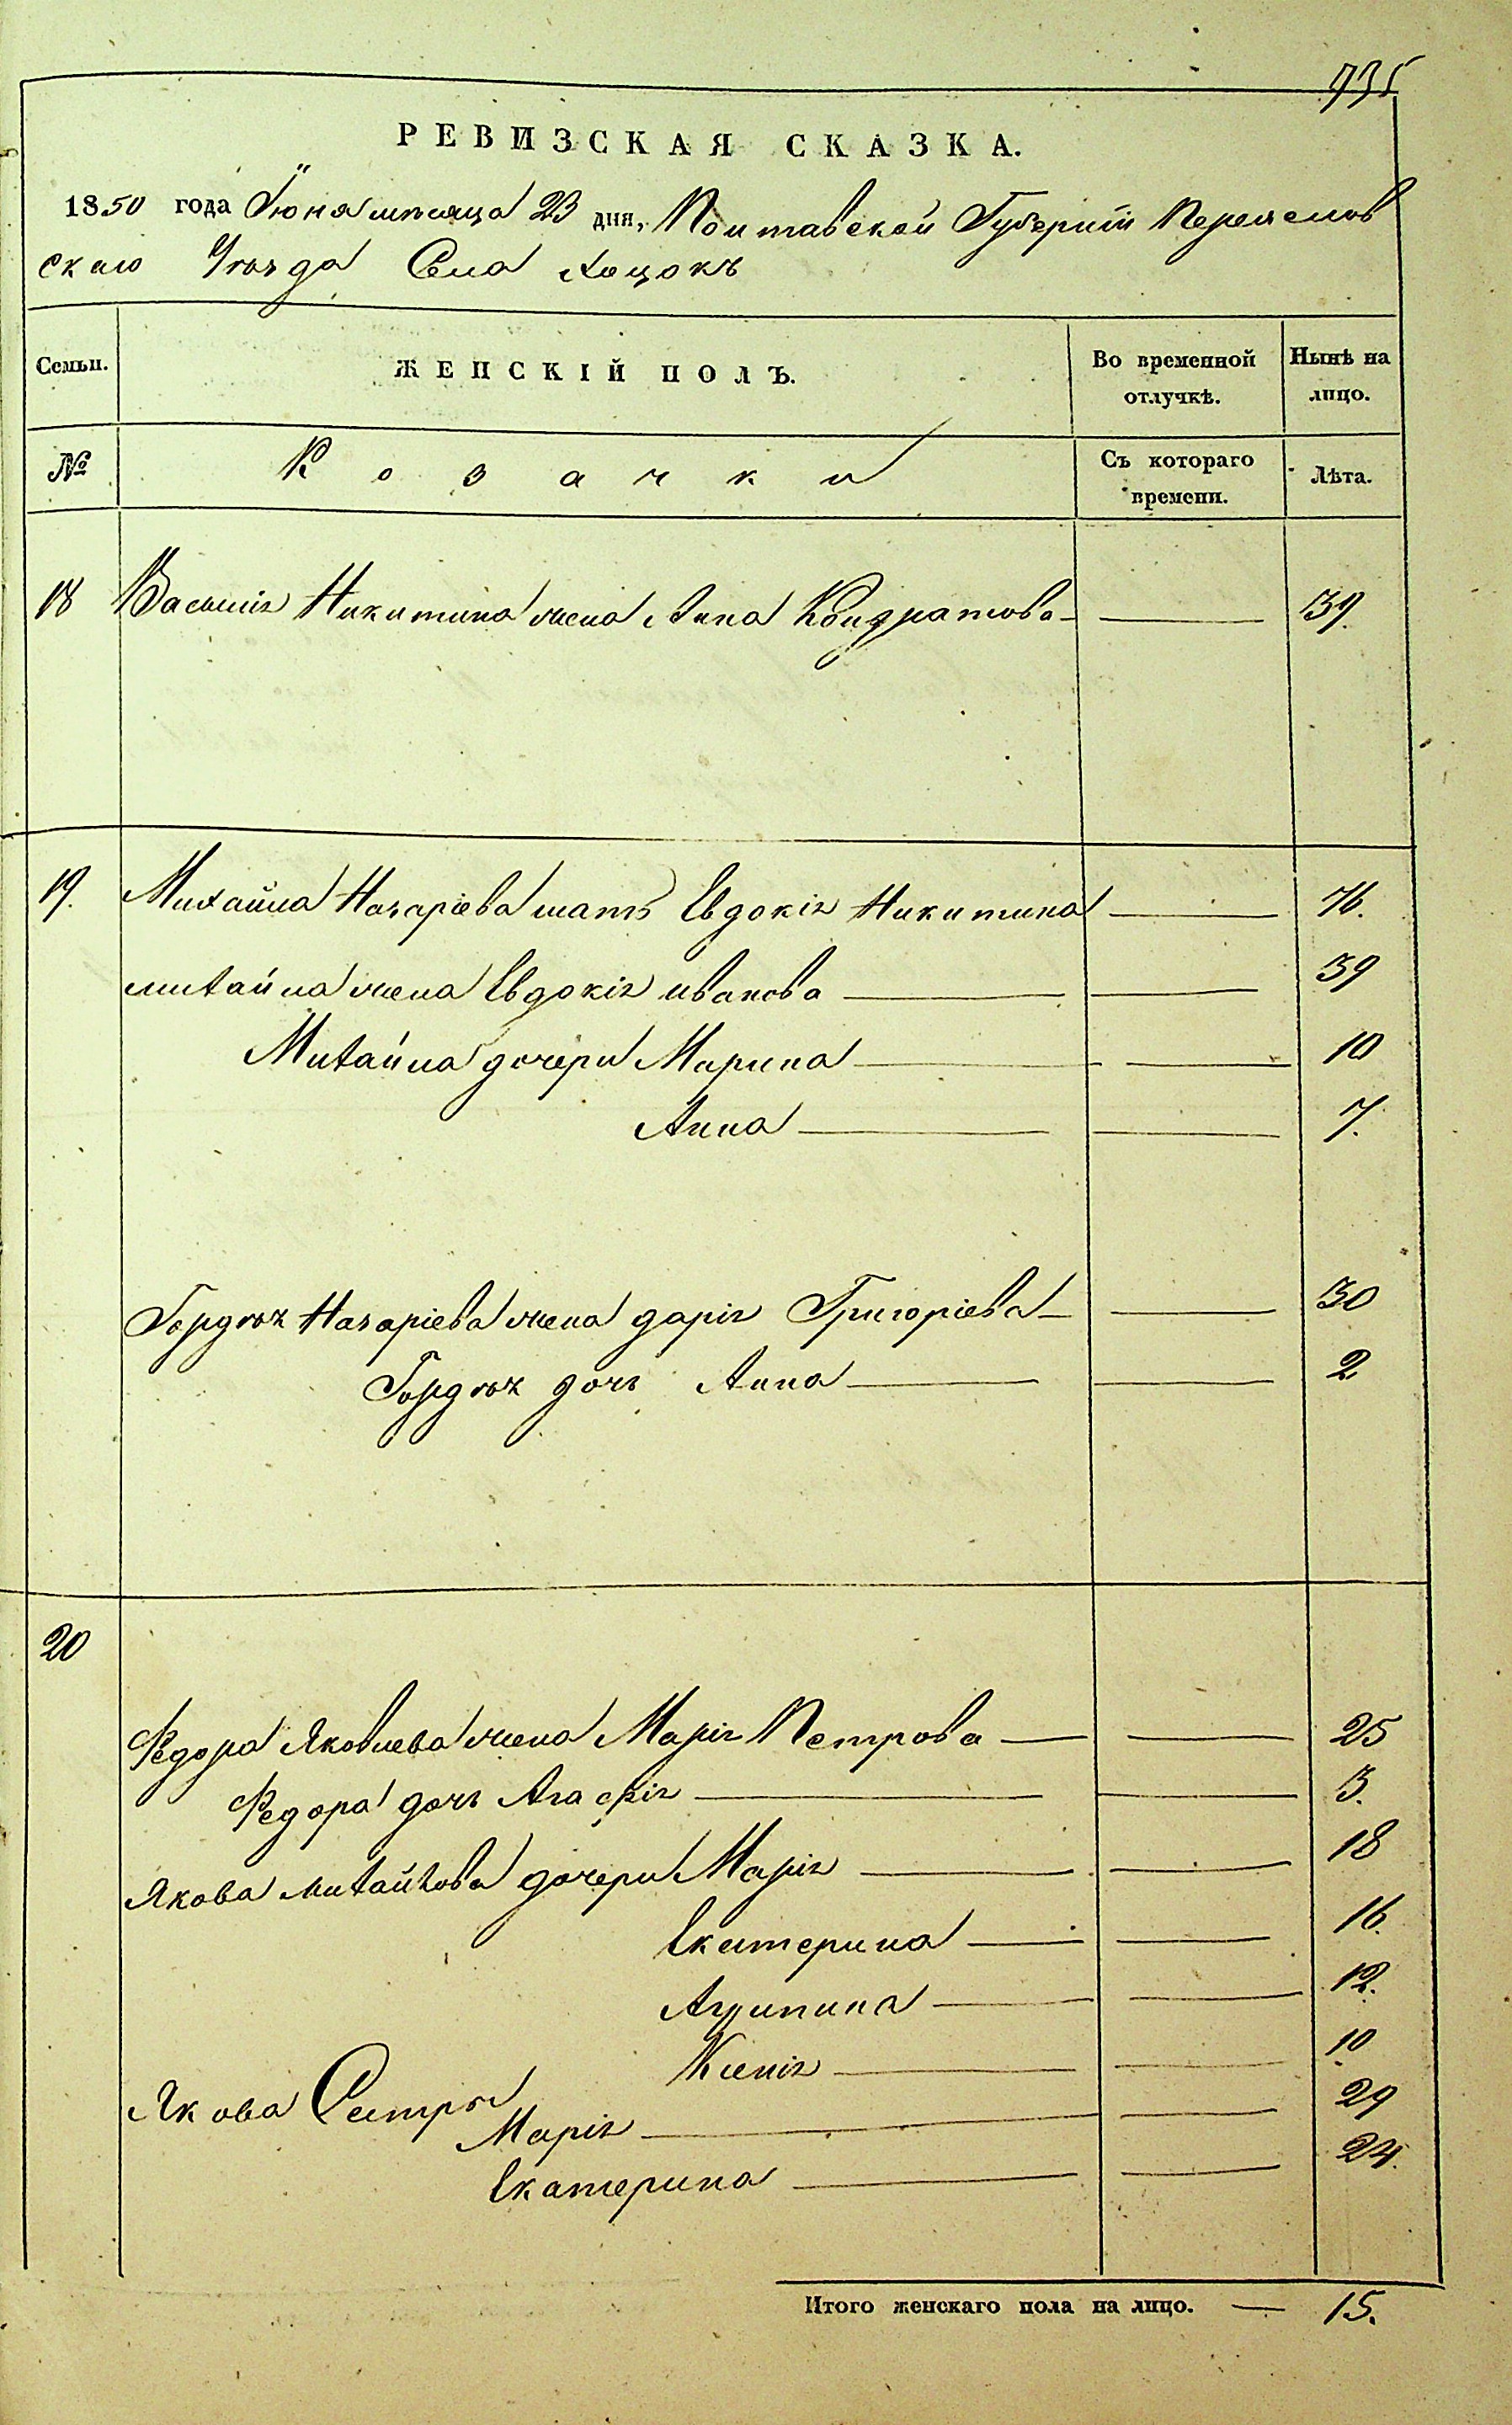 735
РЕВИЗСКАЯ СКАЗКА.
1850 года Іюня мѣсяца 23 дня, Полтавской Губерніи Переяслов
скаго Уѣзда Села Хоцокъ
Семьи. ЖЕНСКІЙ ПОЛЪ. Во временной отлучкѣ. Нынѣ на лицо.
№ Козачки Съ котораго времени. Лѣта.
18 Василія Никитина жена Анна Кондратова — — 39.
19. Михайла Назаріева мать Евдокія Никитина — 76.
михайла жена Евдокія иванова — — 39
Михайла дочери Марина — — 10
Анна — — 7.
Гордѣя Назаріева жена дарія Григоріева — — 30
Гордѣя дочь Анна — — 2
20
Федора Яковлева жена Марія Петрова — — 25
Федора дочь Агафія — — 3.
Якова михайлова дочери Марія — — 18
Екатерина — — 16.
Агрипина — — 12.
Ксенія — — 10
Якова Сестры
Марія — — 29
Екатерина — — 24.
Итого женскаго пола на лицо. — 15.